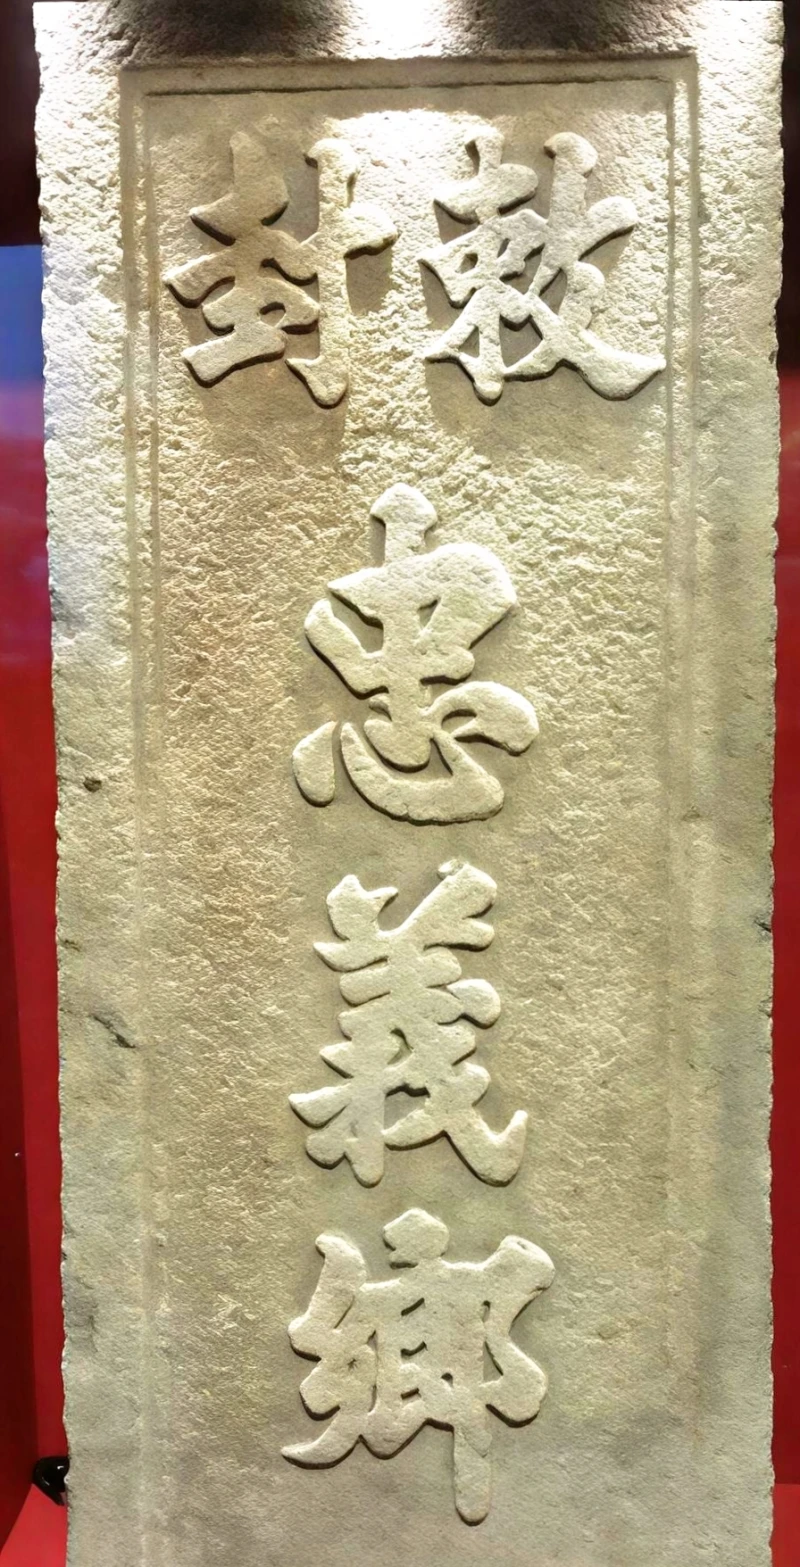 敕封
忠義鄉